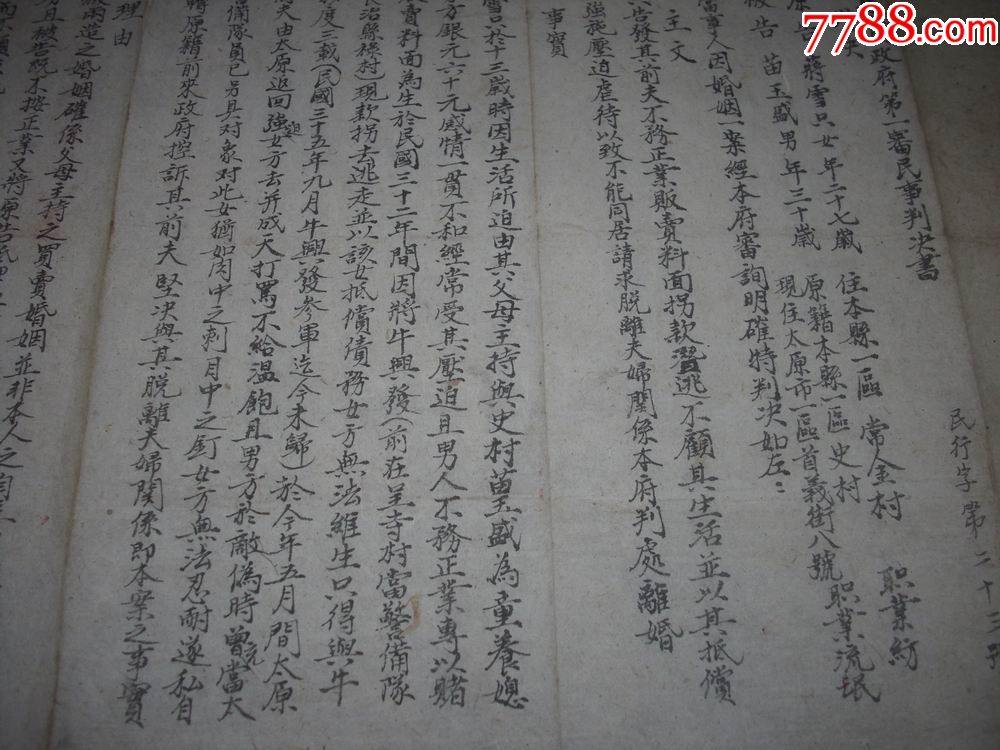 7788.com
民行字第二十三號
政府第一審民事判决書
原告蔣雪只女年二十七歲 住本縣一區常金村 职業紡
被告苗玉盛男年三十歲 原籍本縣一區史村
現住太原市一區首義街八號 职業流氓
當事人因婚姻一案經本府審詢明確特判决如左：
主文
告發其前夫不務正業販賣料面拐款潛逃不顧其生活並以其抵償
強拖壓迫虐待以致不能同居請求脱離夫婦関係本府判處離婚
事實
雪只於十三歲時因生活所迫由其父母主持與史村苗玉盛為童養媳
方銀元六十元感情一貫不和經常受其壓迫且男人不務正業專以賭
賣料面為生於民國三十二年間因將牛興發（前在呈寺村當警備隊
長治縣祿村）現款拐去逃走並以該女抵償債務女方無法維生只得與牛
度三載（民國三十五年九月牛興發参軍迄今未歸）於今年五月間太原
夫由太原返回強迫女方去并成天打罵不給温飽且男方於敵偽時曾充當太
備隊員已另具对象对此女猶如肉中之刺月中之釘女方無法忍耐遂私自
轉原籍前來政府控訴其前夫堅决與其脱離夫婦関係即本案之事實
理由
兩造之婚姻確係父母主持之買賣婚姻並非本人之
且被告既不務正業又將原告抵